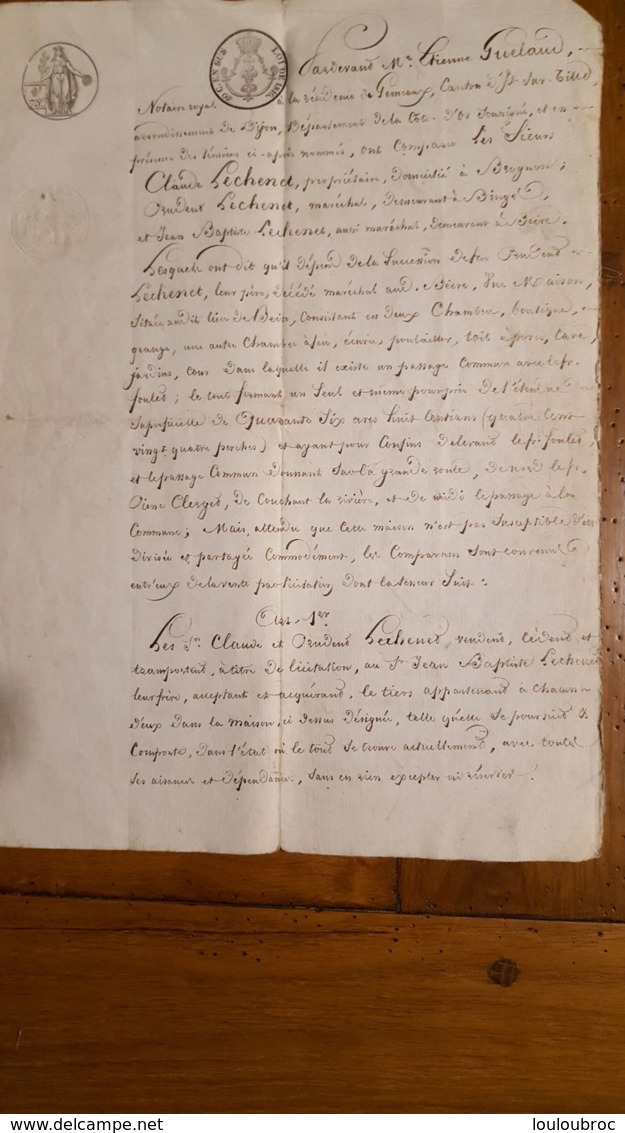 75
90 C. EN SUS
LOI DE 1816
Pardevant Me. Etienne Guelaud,
Notaire royal à la résidence de Gemeaux, Canton d'Is-Sur-Tille,
arrondissement de Dijon, Département de la Côte d'Or soussigné, et en
présence des témoins ci-après nommés, ont Comparu Les Sieurs
Claude Lechenet, propriétaire, domicilié à Brognon;
Prudent Lechenet, maréchal, demeurant à Binges,
et Jean Baptiste Lechenet, aussi maréchal, demeurant à Beire.
Lesquels ont dit qu'il dépend de la Succession de feu Prudent
Lechenet, leur père, décédé maréchal aud. Beire, Une Maison,
Située audit lieu de Beire, Consistant en deux Chambres, boutique,
grange, une autre Chambre à feu, écurie, poulailler, toit à porcs, Cave,
jardins, cour dans laquelle il existe un passage Commun avec les frs.
foulés; le tout formant un Seul et même pourpris de l'étendue
Superficielle de Quarante Six ares huit Centiares (quatre Cent
vingt quatre perches) et ayant pour Confins de levant les frs. foulés,
et le passage Commun donnant sur la grande route, de nord les frs.
Pierre Clerget, de Couchant la rivière, et de midi le passage à la
Commune; Mais, attendu que Cette maison n'est pas Susceptible d'être
Divisée et partagée Commodément, les Comparans sont convenus
entr'eux de la vente par licitation dont la teneur Suit:
Art. 1er
Les Srs. Claude et Prudent Lechenet, vendent, Cèdent et
transportent, à titre de licitation, au Sr. Jean Baptiste Lechenet
leur frère, acceptant et acquérant, le tiers appartenant à chacun
d'eux dans la maison, ci dessus désignée, telle qu'elle se poursuit &
Comporte, dans l'état où le tout se trouve actuellement, avec toutes
ses aisances et dépendances, sans en rien excepter ni réserver.
louloubroc
www.delcampe.net